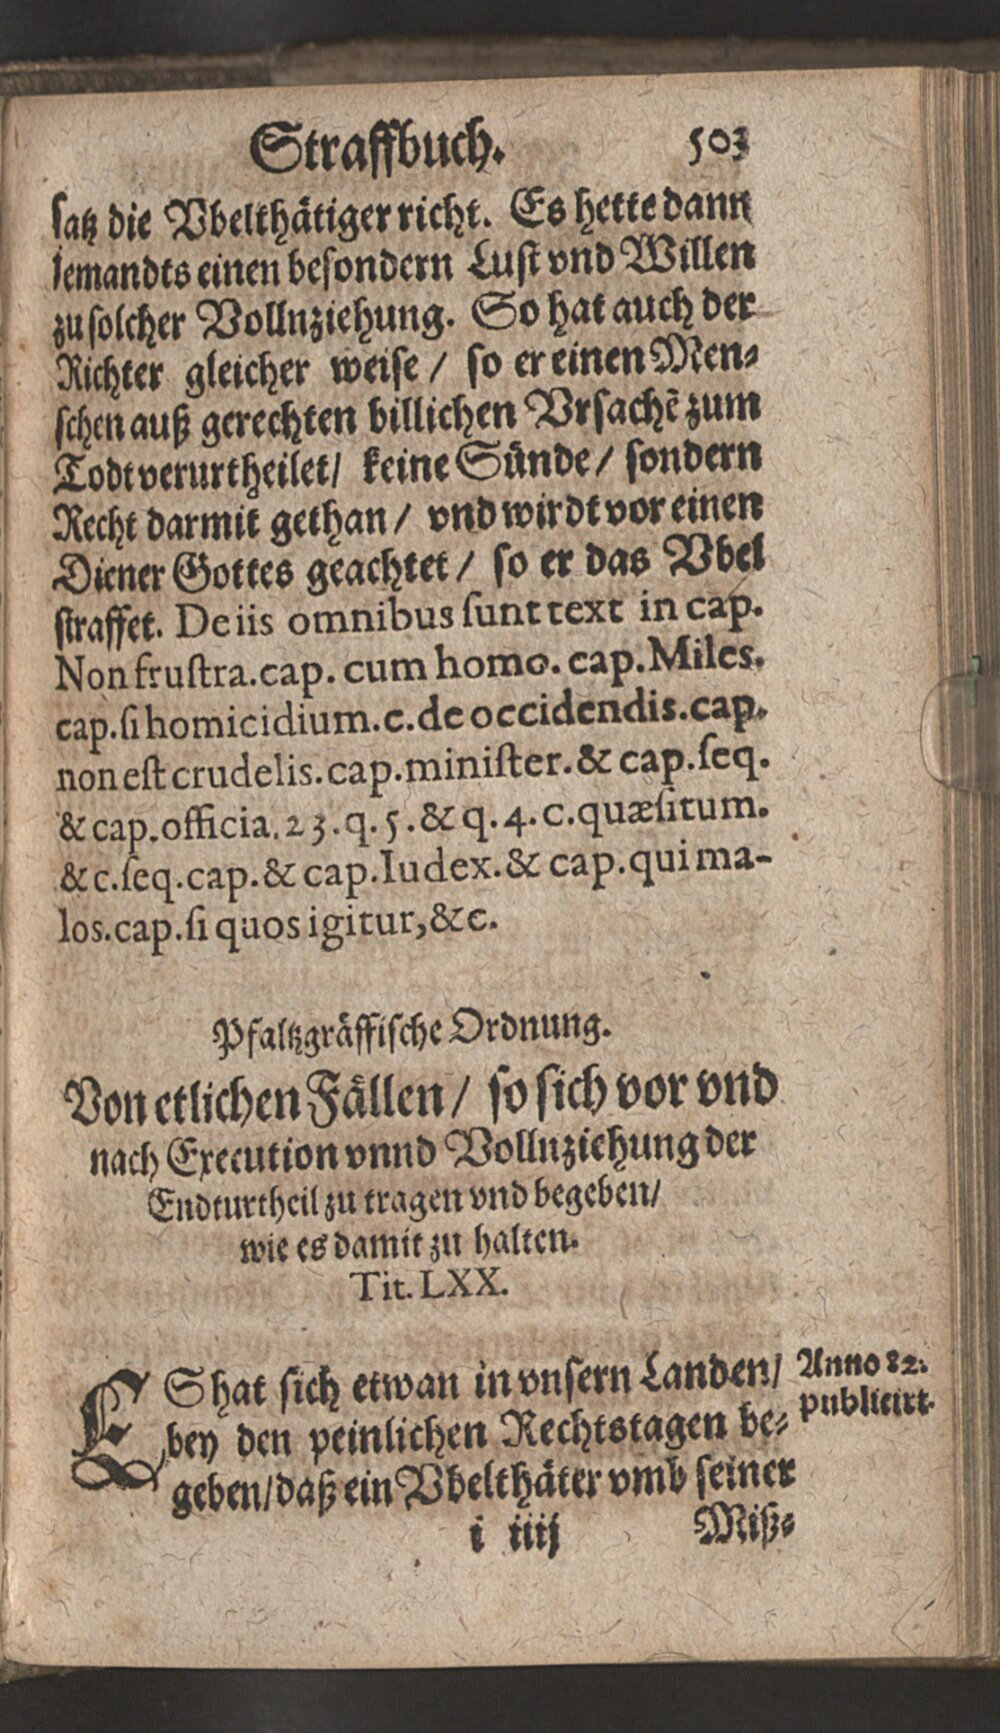 Straffbuch. 503
ſatz die Vbelthätiger richt. Es hette dann
jemandts einen beſondern Luſt vnd Willen
zu ſolcher Vollnziehung. So hat auch der
Richter gleicher weiſe / ſo er einen Men⸗
ſchen auß gerechten billichen Vrſachẽ zum
Todt verurtheilet / keine Sünde / ſondern
Recht darmit gethan / vnd wirdt vor einen
Diener Gottes geachtet / ſo er das Vbel
ſtraffet. De iis omnibus ſunt text in cap.
Non fruſtra. cap. cum homo. cap. Miles.
cap. ſi homicidium. c. de occidendis. cap.
non eſt crudelis. cap. miniſter. & cap. ſeq.
& cap. officia. 23. q. 5. & q. 4. C. quæſitum.
& c. ſeq. cap. & cap. Iudex. & cap. qui ma-
los. cap. ſi quos igitur, &c.
Pfaltzgräffiſche Ordnung.
Von etlichen Fällen / ſo ſich vor vnd
nach Execution vnnd Vollnziehung der
Endturtheil zu tragen vnd begeben /
wie es damit zu halten.
Tit. LXX.
ES hat ſich etwan in vnſern Landen /
bey den peinlichen Rechtstagen be⸗
geben / daß ein Vbelthäter vmb ſeiner
Anno 82.
publicirt.
i iiij Miß⸗